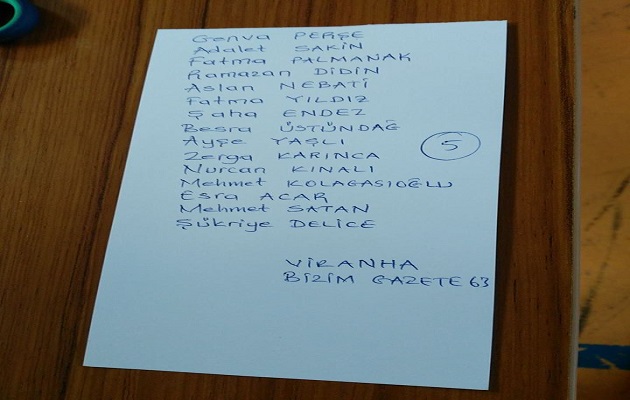 Gonva PERŞE
Adalet SAKİN
Fatma PALMANAK
Ramazan DİDİN
Aslan NEBATİ
Fatma YILDIZ
Şaha ENDEZ
Besra ÜSTÜNDAĞ
Ayşe YAŞLI
Zerga KARINCA
Nurcan KINALI
Mehmet KOLAGASIOĞLU
Esra ACAR
Mehmet SATAN
Şükriye DELİCE
5
VİRANHA
BİZİM GAZETE 63